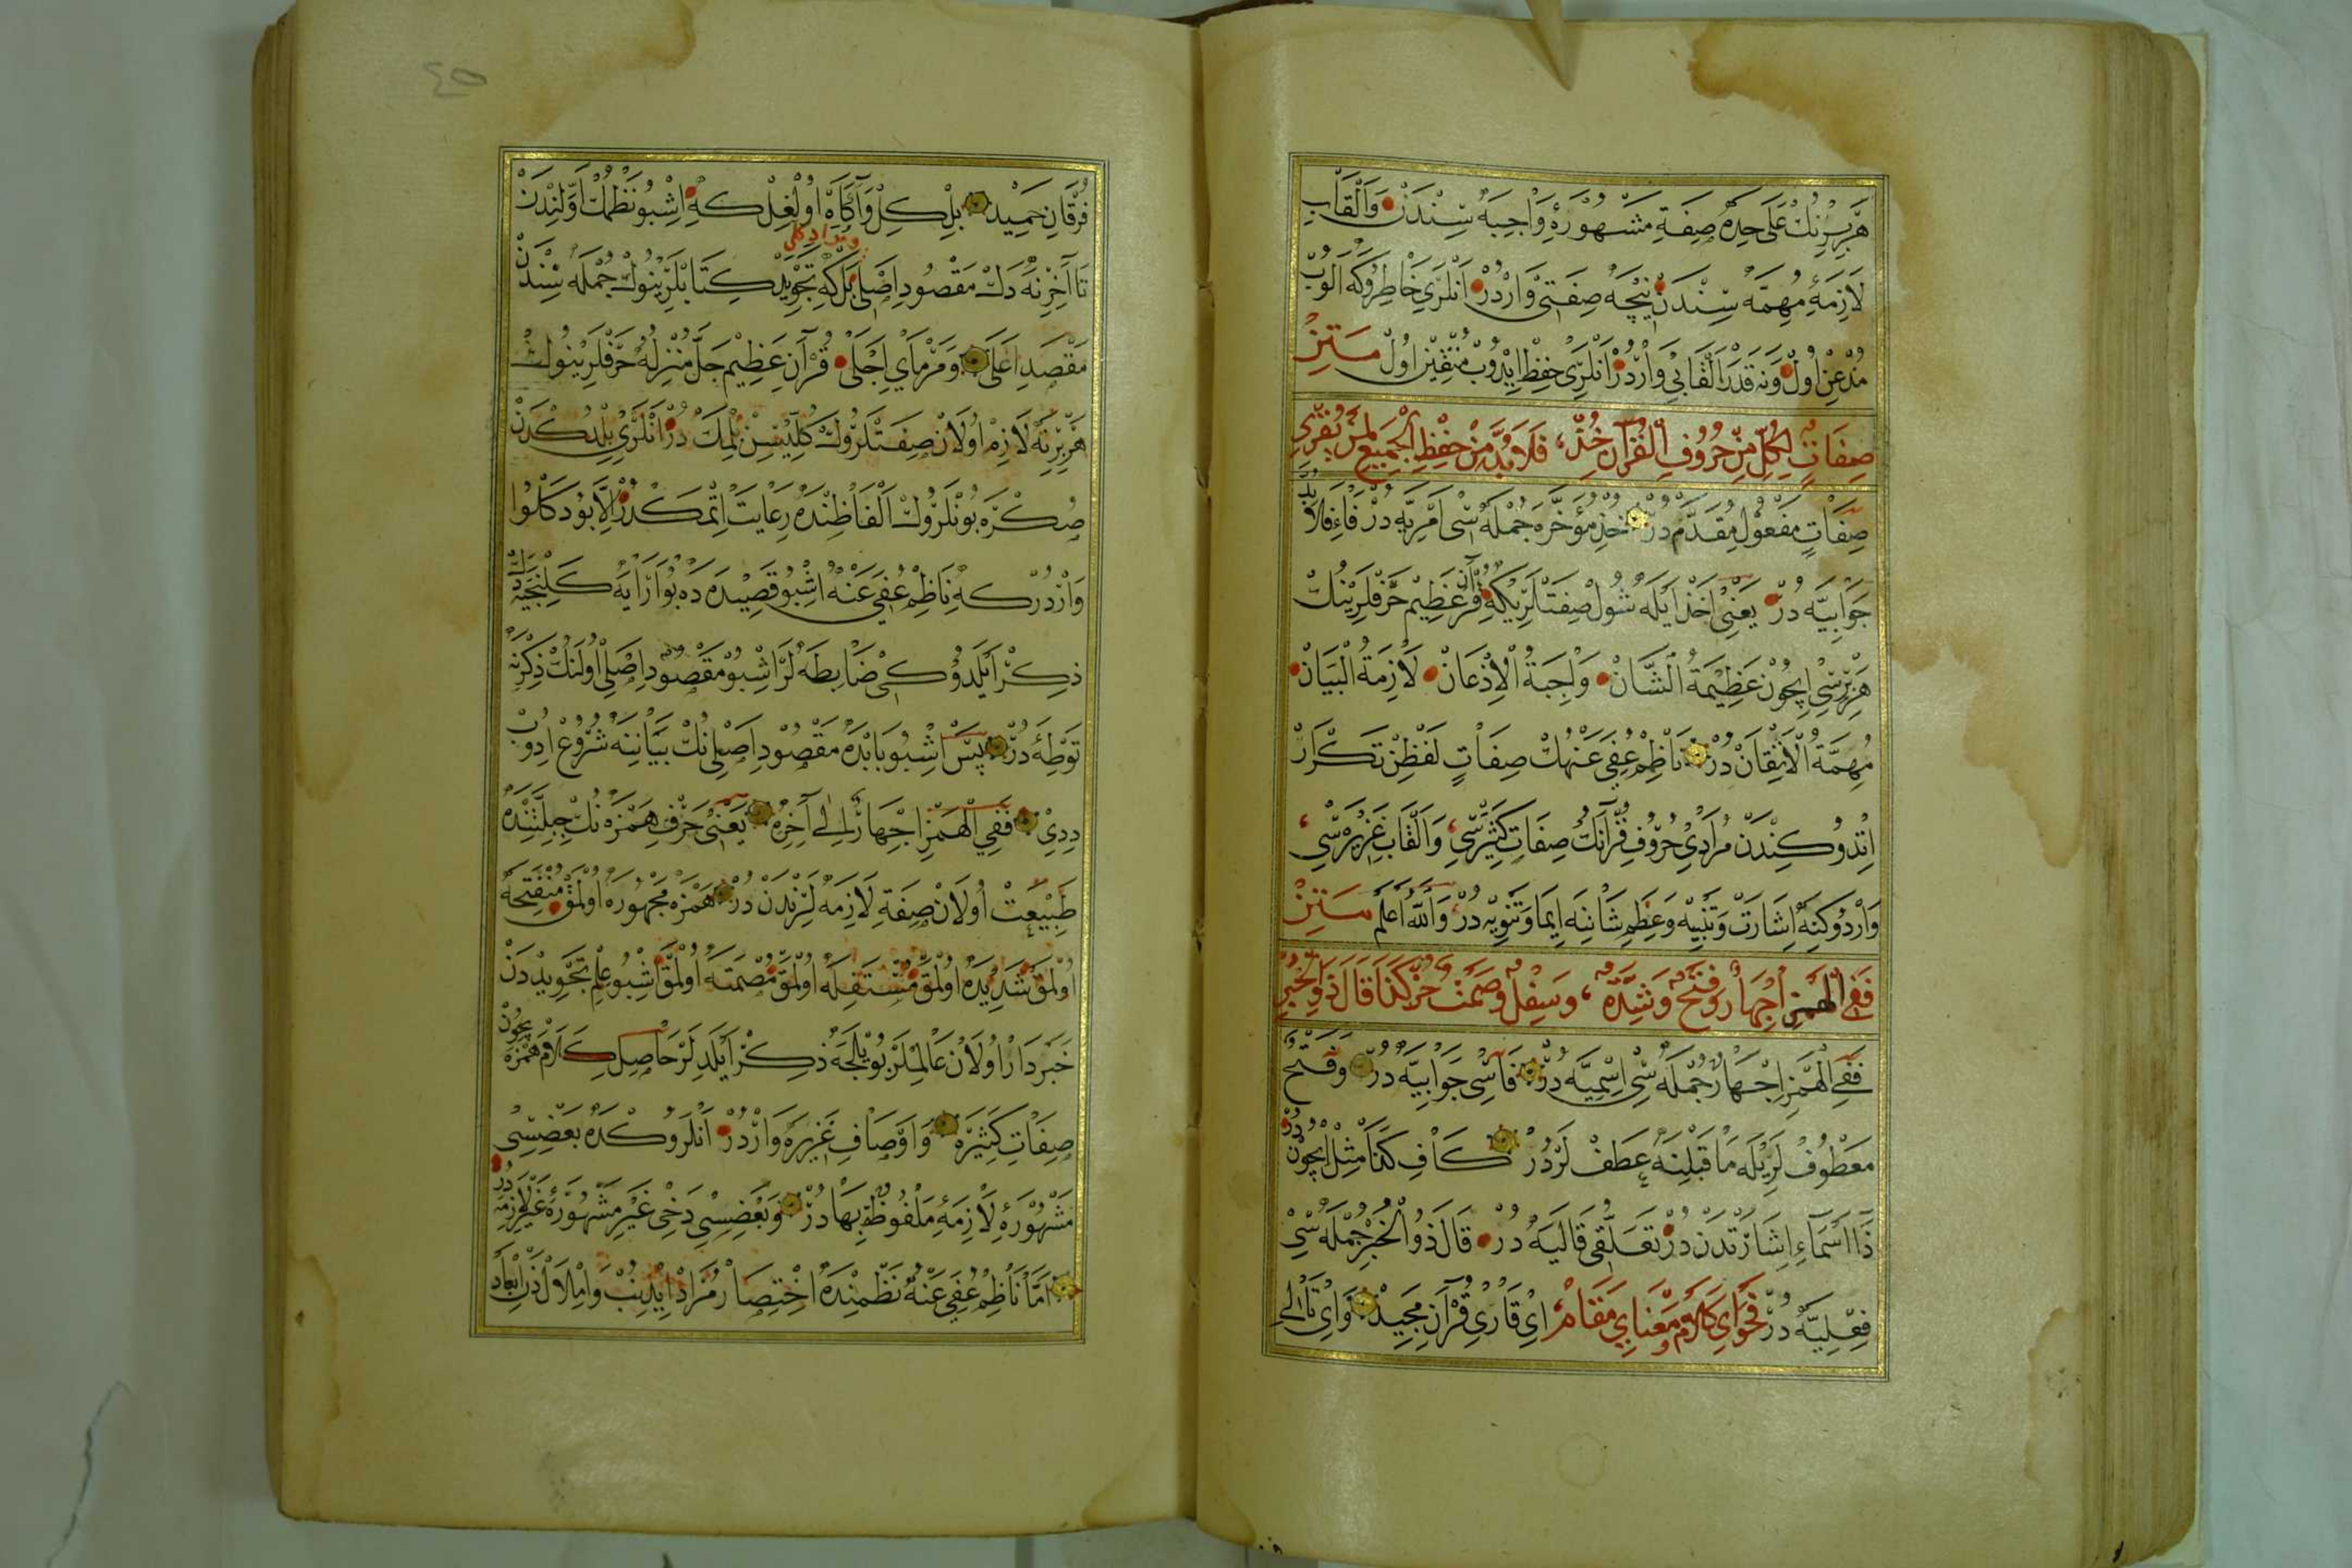 هَرْ بِرِينُكْ عَلَى حِدَةٍ صِفَةِ مَشْهُورَةِ وَاجِبَه سِنْدَنْ وَالْقَابِ
لَازِمَهِٔ مُهِمَّه سِنْدَنْ نِيچَه صِفَتِى وَارْدُرْ اَنْلَرِى خَاطِرُوكَه الُوبْ
مُذْعِنْ اُولْ وَنَه قَدَرْ اَلْقَابِى وَارْدُرْ اَنْلَرِى حِفْظْ ايْدُوبْ مُتْقِنْ اُولْ مَتِنْ
صِفَاتٍ لِكُلٍّ مِنْ حُرُوفِ الْقُرْآنِ خُذْ، فَلَا بُدَّ مِنْ حِفْظِ الْجَمِيعِ لِمَنْ
صِفَاتٍ مَفْعُولِ مُقَدَّمْ دُرْ خُذْ مُؤَخَّرَه جُمْلَه سِى اَمْرِيَّه دُرْ فَاءِ فَلَا بُدَّ
جَوَابِيَّه دُرْ يَعْنِى اَخْذ اَيْلَه شُولْ صِفَتْلَرِيكِه قُرْآنِ عَظِيمْ حَرْفْلَرِينُكْ
هَرْ بِرِسِى اِيچُونْ عَظِيمَةُ الشَّانْ وَاجِبَةُ الْاِذْعَانْ لَازِمَةُ الْبَيَانْ
مُهِمَّةُ الْاِتْقَانْ دُرْ نَاظِمْ عُفِىَ عَنْهُكْ صِفَاتٍ لَفْظِنْ تَكْرَارْ
اِتْدُوكِنْدَنْ مُرَادِى حُرُوفِ قُرْآنُكْ صِفَاتِ كَثِيرَسِى وَالْقَابِ غَزِيرَه سِى
وَارْدُوكِنَه اِشَارَتْ وَتَنْبِيهْ وَعِظَمِ شَانِنَه اِيمَا وَتَنْوِيهْ دُرْ وَاللّٰهُ اَعْلَمُ مَتِنْ
فَفِى الْهَمْزِ اِجْهَارٌ وَفَتْحٌ وَشِدَّةٌ، وَسِفْلٌ وَصَمْتٌ كَذَا قَالَ ذُو الْخُبْرِ
فَفِى الْهَمْزِ اِجْهَارٌ جُمْلَه سِى اِسْمِيَّه دُرْ فَاسِى جَوَابِيَّه دُرْ وَفَتْحٌ
مَعْطُوفْلَرِيلَه مَا قَبْلِنَه عَطَفْلَرْدُرْ كَافِ كَذَا مِثْل اِيچُونْ دُرْ
ذَا اَسْمَاءِ اِشَارَتْدَنْ دُرْ تَعَلُّقِى قَالَيَه دُرْ قَالَ ذُو الْخُبْرِ جُمْلَه سِى
فِعْلِيَّه دُرْ فَحْوَاىِ كَلَامْ وَمَعْنَاىِ مَقَامْ اىْ قَارِىِٔ قُرْآنِ مَجِيدْ وَاىْ تَالِىِٔ
فُرْقَانِ حَمِيدْ بِلْ كِلْ وَآكَاهْ اُولْغِلْ كِه اِشْبُو نَظْمُكْ اَوَّلِنْدَنْ
تَا آخِرِنَه دَكْ مَقْصُودِ اَصْلِى بَلْكِه تَجْوِيدْ كِتَابْلَرِينُوكْ جُمْلَه سِنْدَنْ
مَقْصَدِ اَعْلَى وَمَرْمَاىِ اَجْلَى قُرْآنِ عَظِيمْ جَلَّ مُنْزِلُهُ حَرْفْلَرِينُوكْ
هَرْ بِرِنَه لَازِمْ اُولَانْ صِفَتْلَرُوكْ كُلِّيسِنْ بِلْمَكْدُرْ اَنْلَرِى بِلْدُكْدَنْ
صِكْرَه بُونْلَرُوكْ اَلْفَاظِنْدَه رِعَايَتْ اِتْمَكْدُرْ اِلَّا بُو دَكْلُو
وَارْدُرْ كِه نَاظِمْ عُفِىَ عَنْهُ اِشْبُو قَصِيدَه دَه بُو اَرَايَه كَلِنْجَيَه دَكْ
ذِكْرْ اَيْلَدُوكِى ضَابِطَه لَرْ اِشْبُو مَقْصُودِ اَصْلِى اُولَنُكْ ذِكْرِنَه
تَوْطِئَه دُرْ پَسْ اِشْبُو بَابْدَه مَقْصُودِ اَصْلِى نُكْ بَيَانِنَه شُرُوعْ ادُوبْ
دِدِى فَفِى الْهَمْزِ اِجْهَارٌ اِلَى آخِرِهِ يَعْنِى حَرْفِ هَمْزَه نُكْ جِبِلَّتِنْدَه
طَبِيعَتْ اُولَانْ صِفَةِ لَازِمَه لَرِنْدَنْ دُرْ هَمْزَه مَجْهُورَه اُولْمَقْ مُنْفَتِحَه
اُولْمَقْ شَدِيدَه اُولْمَقْ مُسْتَفِلَه اُولْمَقْ مُصْمَتَه اُولْمَقْ اِشْبُو عِلْمِ تَجْوِيدْدَنْ
خَبَرْدَارْ اُولَانْ عَالِمْلَرْ بُويْلَجَه ذِكْرْ اَيْلَدِيلَرْ حَاصِلِ كَلَامْ هَمْزَه اِيچُونْ
صِفَاتِ كَثِيرَه وَاَوْصَافِ غَزِيرَه وَارْدُرْ اَنْلَرُوكْدَه بَعْضِسِى
مَشْهُورَهِٔ لَازِمَهِٔ مَلْفُوظٌ بِهَا دُرْ وَبَعْضِسِى دَخِى غَيْرِ مَشْهُورَهِٔ غَيْرِ لَازِمَه دُرْ
اَمَّا نَاظِمْ عُفِىَ عَنْهُ نَظْمِنْدَه اِخْتِصَارْ مُرَادْ اِيدِنُبْ وَاِمْلَالْدَنْ اِبْعَادْ
٤٥